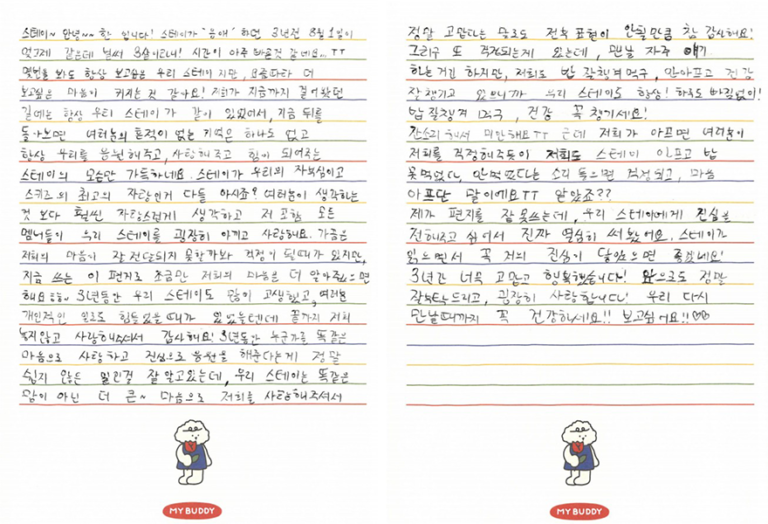 스테이~ 안녕~~ 한 입니다! 스테이가 "공해" 하던 3년전 8월 1일이
엊그제 같은데 벌써 3살이라니! 시간이 아주 빠른것 같네요...ㅠㅠ
몇번을 봐도 항상 보고싶은 우리 스테이 지만, 요즘따라 더
보고싶은 마음이 커지는 것 같아요! 저희가 지금까지 걸어왔던
길에는 항상 우리 스테이가 같이 있었어서, 지금 뒤를
돌아보면 여러분의 흔적이 없는 기억은 하나도 없고
항상 우리를 응원해주고, 사랑해주고 힘이 되어주는
스테이의 모습만 가득하네요. 스테이가 우리의 자부심이고
스키즈의 최고의 자랑인거 다들 아시죠? 여러분이 생각하는
것 보다 훨씬 자랑스럽게 생각하고 저 포함 모든
멤버들이 우리 스테이를 굉장히 아끼고 사랑해요. 가끔은
저희의 마음이 잘 전달되지 못할까봐 걱정이 될때가 있지만,
지금 쓰는 이 편지로 조금만 저희의 마음을 더 알아줬으면
해요 3년동안 우리 스테이도 많이 고생했고, 여러분
개인적인 일로도 힘들었을 때가 있었을텐데 끝까지 저희
놓지않고 사랑해주셔서 감사해요! 3년동안 누군가를 똑같은
마음으로 사랑하고 진심으로 응원을 해준다는게 정말
쉽지 않은 일인걸 잘 알고있는데, 우리 스테이는 똑같은
맘이 아닌 더 큰~ 마음으로 저희를 사랑해주셔서
정말 고맙다는 말로도 전부 표현이 안될만큼 참 감사해요!
그리구 또 걱정되는게 있는데, 맨날 자주 얘기
하는거긴 하지만, 저희도 밥 잘챙겨먹구, 안아프고 건강
잘 챙기고 있으니까 우리 스테이도 항상! 하루도 빠짐없이!
밥 잘챙겨 먹구, 건강 꼭 챙기세요!
잔소리 해서 미안해요ㅠㅠ 근데 저희가 아프면 여러분이
저희를 걱정해주듯이 저희도 스테이 아프고 밥
못먹었다, 안먹었다는 소리 들으면 걱정되고, 마음
아프단 말이에요ㅠㅠ 알았죠??
제가 편지를 잘 못쓰는데, 우리 스테이에게 진심을
전해주고 싶어서 진짜 열심히 써봤어요. 스테이가
읽으면서 꼭 저의 진심이 닿았으면 좋겠네요!
3년간 너무 고맙고 행복했습니다! 앞으로도 정말
잘부탁드리고, 굉장히 사랑합니다! 우리 다시
만날때까지 꼭 건강하세요!! 보고싶어요!!♡♡
MY BUDDY
MY BUDDY